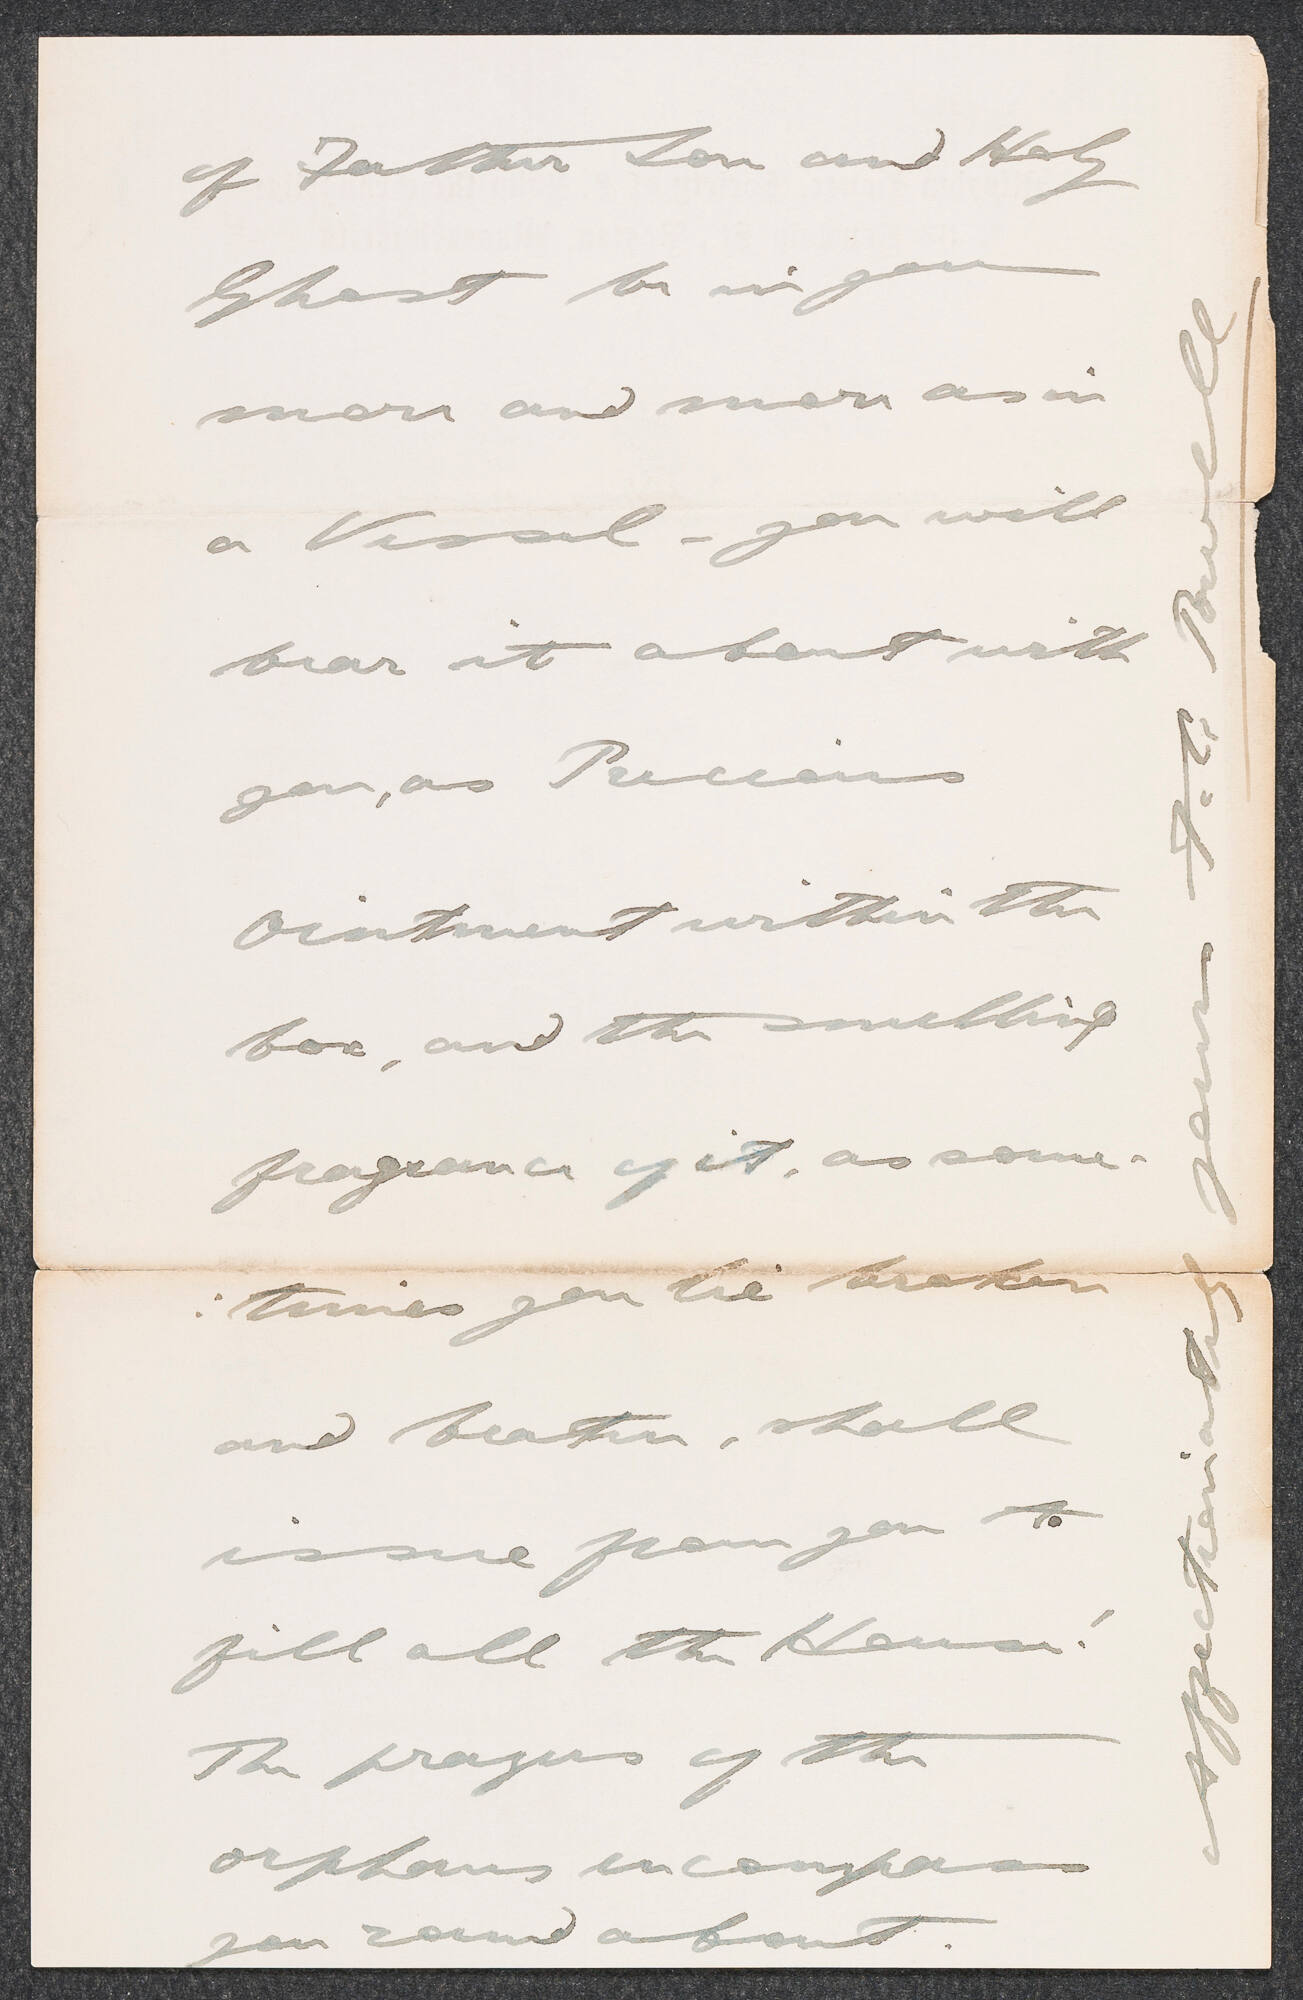 of Father Son and Holy
Ghost be in you
more and more as in
a Vessel - you will
bear it about with
you, as Precious
Ointment within the
box, and the smelling
fragrance of it, as some-
:times you lie broken
and beaten, shall
issue from you to
fill all the House!
The prayers of the
orphans encompass
you round about.
Affectionately yours F. E. Powell